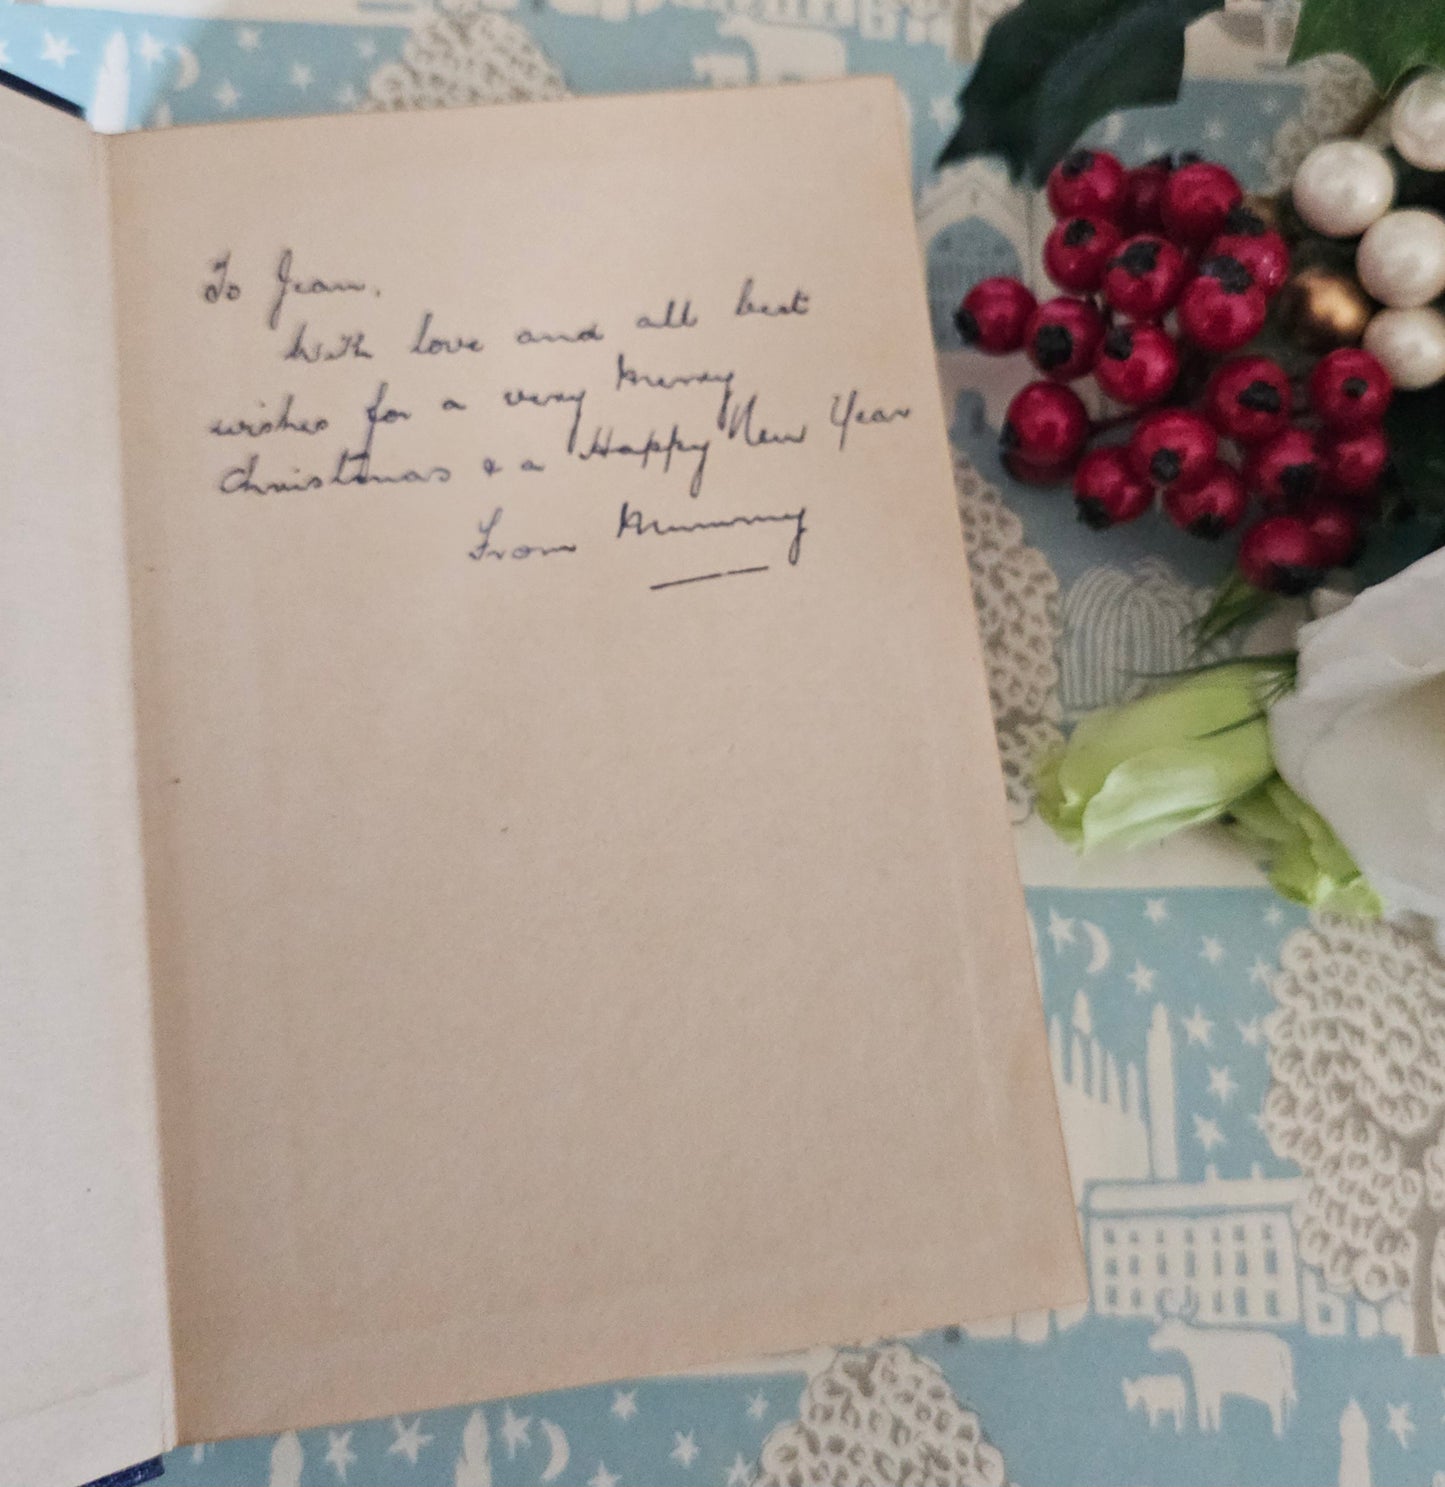 To Jean.
With love and all best
wishes for a very Merry
Christmas & a Happy New Year
From Mummy